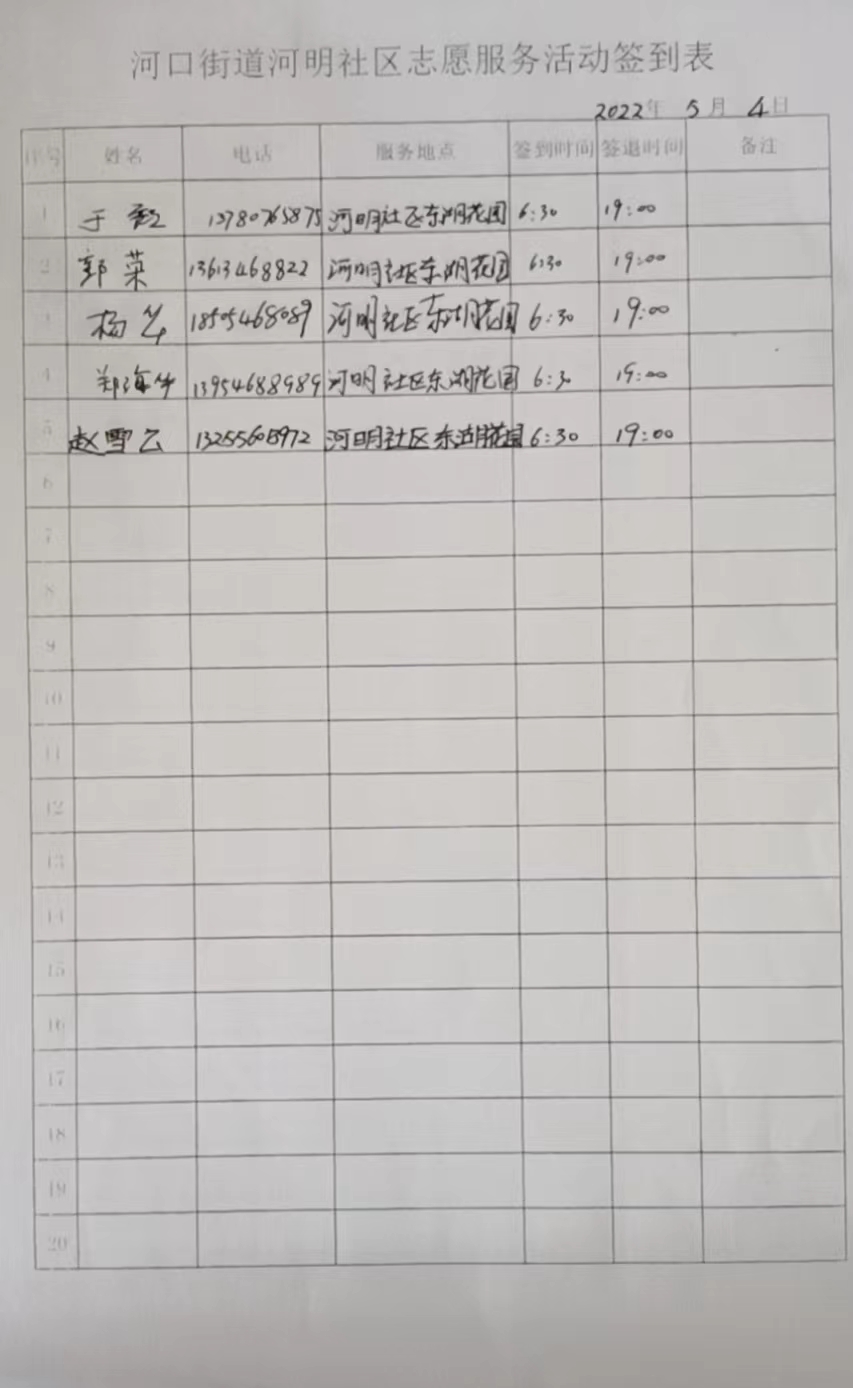 河口街道河明社区志愿服务活动签到表
2022年 5月 4日
序号 姓名 电话 服务地点 签到时间 签退时间 备注
1 于 13780765875 河明社区东湖花园 6:30 19:00
2 郭荣 13613468822 河明社区东湖花园 6:30 19:00
3 杨华 18505468089 河明社区东湖花园 6:30 19:00
4 郑海华 13954688989 河明社区东湖花园 6:30 19:00
5 赵雪云 河明社区东湖花园 6:30 19:00
6
7
8
9
10
11
12
13
14
15
16
17
18
19
20